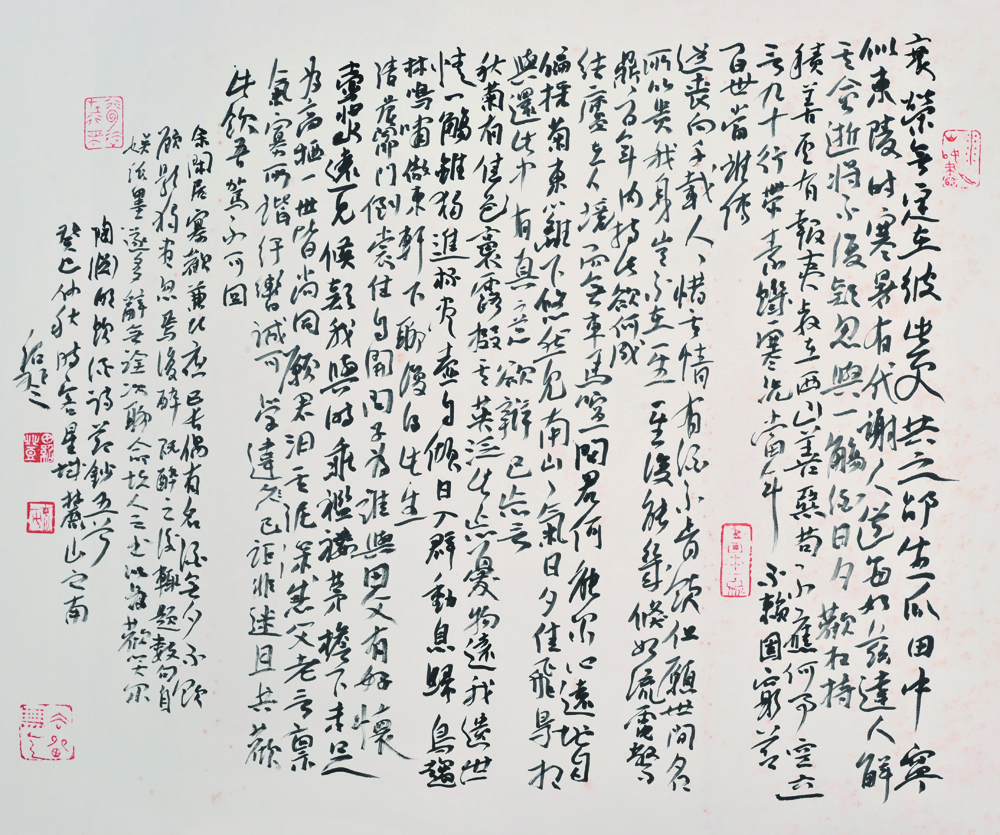 衰榮無定在彼此更共之邵生瓜田中寧
似東陵時寒暑有代謝人道每如茲達人解
其會逝將不復疑忽與一觴酒日夕歡相持
積善云有報夷叔在西山善惡苟不應何事空立
言九十行帶索飢寒況當年不賴固窮節
百世當誰傳
道喪向千載人人惜其情有酒不肯飲但願世間名
所以貴我身豈不在一生一生復能幾倏如流電驚
鼎鼎百年內持此欲何成
結廬在人境而無車馬喧問君何能爾心遠地自
偏採菊東籬下悠然見南山山氣日夕佳飛鳥相
與還此中有真意欲辯已忘言
秋菊有佳色裛露掇其英泛此忘憂物遠我遺世
情一觴雖獨進杯盡壺自傾日入群動息歸鳥趨
林鳴嘯傲東軒下聊復得此生
清晨聞叩門倒裳往自開問子為誰與田父有好懷
壺漿遠見候疑我與時乖襤褸茅簷下未足
為高栖一世皆尚同願君汩其泥深感父老言稟
氣寡所諧紆轡誠可學違己詎非迷且共歡
此飲吾駕不可回
余閑居寡歡兼比夜已長偶有名酒無夕不飲
顧影獨盡忽焉復醉既醉之後輒題數句自
娛紙墨遂多辭無詮次聊命故人書之以為歡笑爾
陶淵明飲酒詩節鈔五首
癸巳仲秋時客星城麓山之南